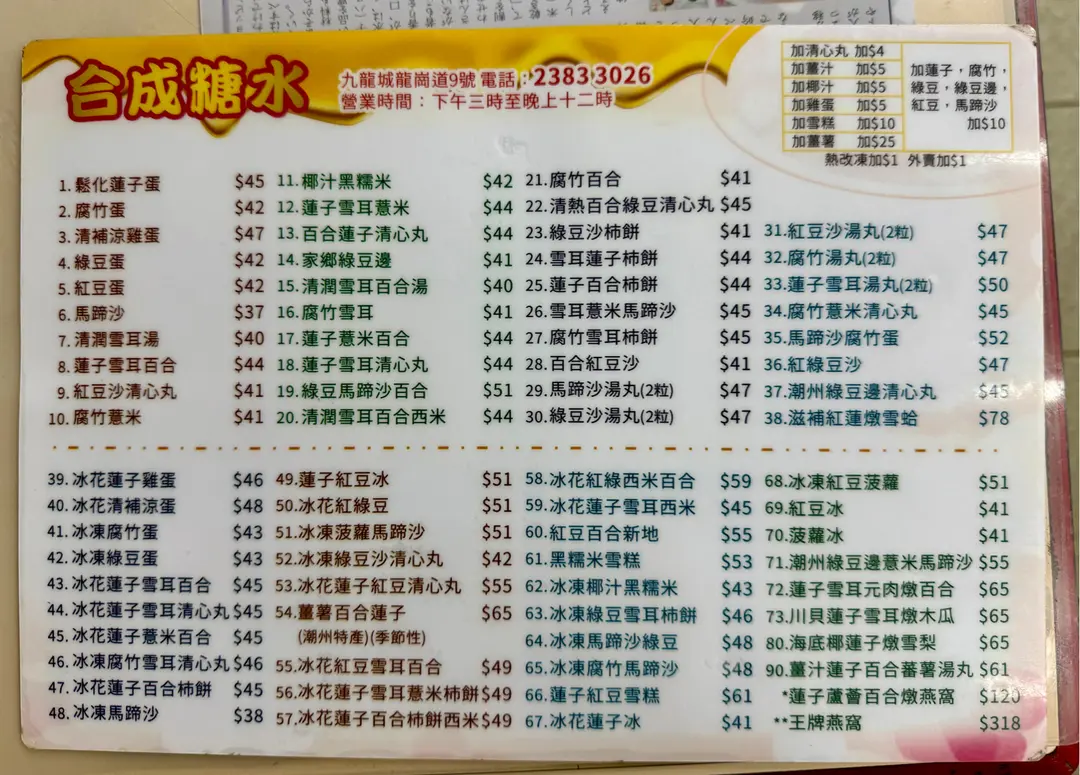 合成糖水
九龍城龍崗道9號 電話：2383 3026
營業時間：下午三時至晚上十二時
加清心丸 加$4
加薑汁 加$5
加椰汁 加$5
加雞蛋 加$5
加雪糕 加$10
加薑薯 加$25
加蓮子，腐竹，
綠豆，綠豆邊，
紅豆，馬蹄沙
加$10
熱改凍加$1 外賣加$1
1.鬆化蓮子蛋 $45
2.腐竹蛋 $42
3.清補涼雞蛋 $47
4.綠豆蛋 $42
5.紅豆蛋 $42
6.馬蹄沙 $37
7.清潤雪耳湯 $40
8.蓮子雪耳百合 $44
9.紅豆沙清心丸 $41
10.腐竹薏米 $41
11.椰汁黑糯米 $42
12.蓮子雪耳薏米 $44
13.百合蓮子清心丸 $44
14.家鄉綠豆邊 $41
15.清潤雪耳百合湯 $40
16.腐竹雪耳 $41
17.蓮子薏米百合 $44
18.蓮子雪耳清心丸 $44
19.綠豆馬蹄沙百合 $51
20.清潤雪耳百合西米 $44
21.腐竹百合 $41
22.清熱百合綠豆清心丸 $45
23.綠豆沙柿餅 $41
24.雪耳蓮子柿餅 $44
25.蓮子百合柿餅 $44
26.雪耳薏米馬蹄沙 $45
27.腐竹雪耳柿餅 $45
28.百合紅豆沙 $41
29.馬蹄沙湯丸(2粒) $47
30.綠豆沙湯丸(2粒) $47
31.紅豆沙湯丸(2粒) $47
32.腐竹湯丸(2粒) $47
33.蓮子雪耳湯丸(2粒) $50
34.腐竹薏米清心丸 $45
35.馬蹄沙腐竹蛋 $52
36.紅綠豆沙 $47
37.潮州綠豆邊清心丸 $45
38.滋補紅蓮燉雪蛤 $78
39.冰花蓮子雞蛋 $46
40.冰花清補涼蛋 $48
41.冰凍腐竹蛋 $43
42.冰凍綠豆蛋 $43
43.冰花蓮子雪耳百合 $45
44.冰花蓮子雪耳清心丸 $45
45.冰花蓮子薏米百合 $45
46.冰凍腐竹雪耳清心丸 $46
47.冰花蓮子百合柿餅 $45
48.冰凍馬蹄沙 $38
49.蓮子紅豆冰 $51
50.冰花紅綠豆 $51
51.冰凍菠蘿馬蹄沙 $51
52.冰凍綠豆沙清心丸 $42
53.冰花蓮子紅豆清心丸 $55
54.薑薯百合蓮子 $65
(潮州特產)(季節性)
55.冰花紅豆雪耳百合 $49
56.冰花蓮子雪耳薏米柿餅 $49
57.冰花蓮子百合柿餅西米 $49
58.冰花紅綠西米百合 $59
59.冰花蓮子雪耳西米 $45
60.紅豆百合新地 $55
61.黑糯米雪糕 $53
62.冰凍椰汁黑糯米 $43
63.冰凍綠豆雪耳柿餅 $46
64.冰凍馬蹄沙綠豆 $48
65.冰凍腐竹馬蹄沙 $48
66.蓮子紅豆雪糕 $61
67.冰花蓮子冰 $41
68.冰凍紅豆菠蘿 $51
69.紅豆冰 $41
70.菠蘿冰 $41
71.潮州綠豆邊薏米馬蹄沙 $55
72.蓮子雪耳元肉燉百合 $65
73.川貝蓮子雪耳燉木瓜 $65
80.海底椰蓮子燉雪梨 $65
90.薑汁蓮子百合蕃薯湯丸 $61
*蓮子蘆薈百合燉燕窩 $120
**王牌燕窩 $318